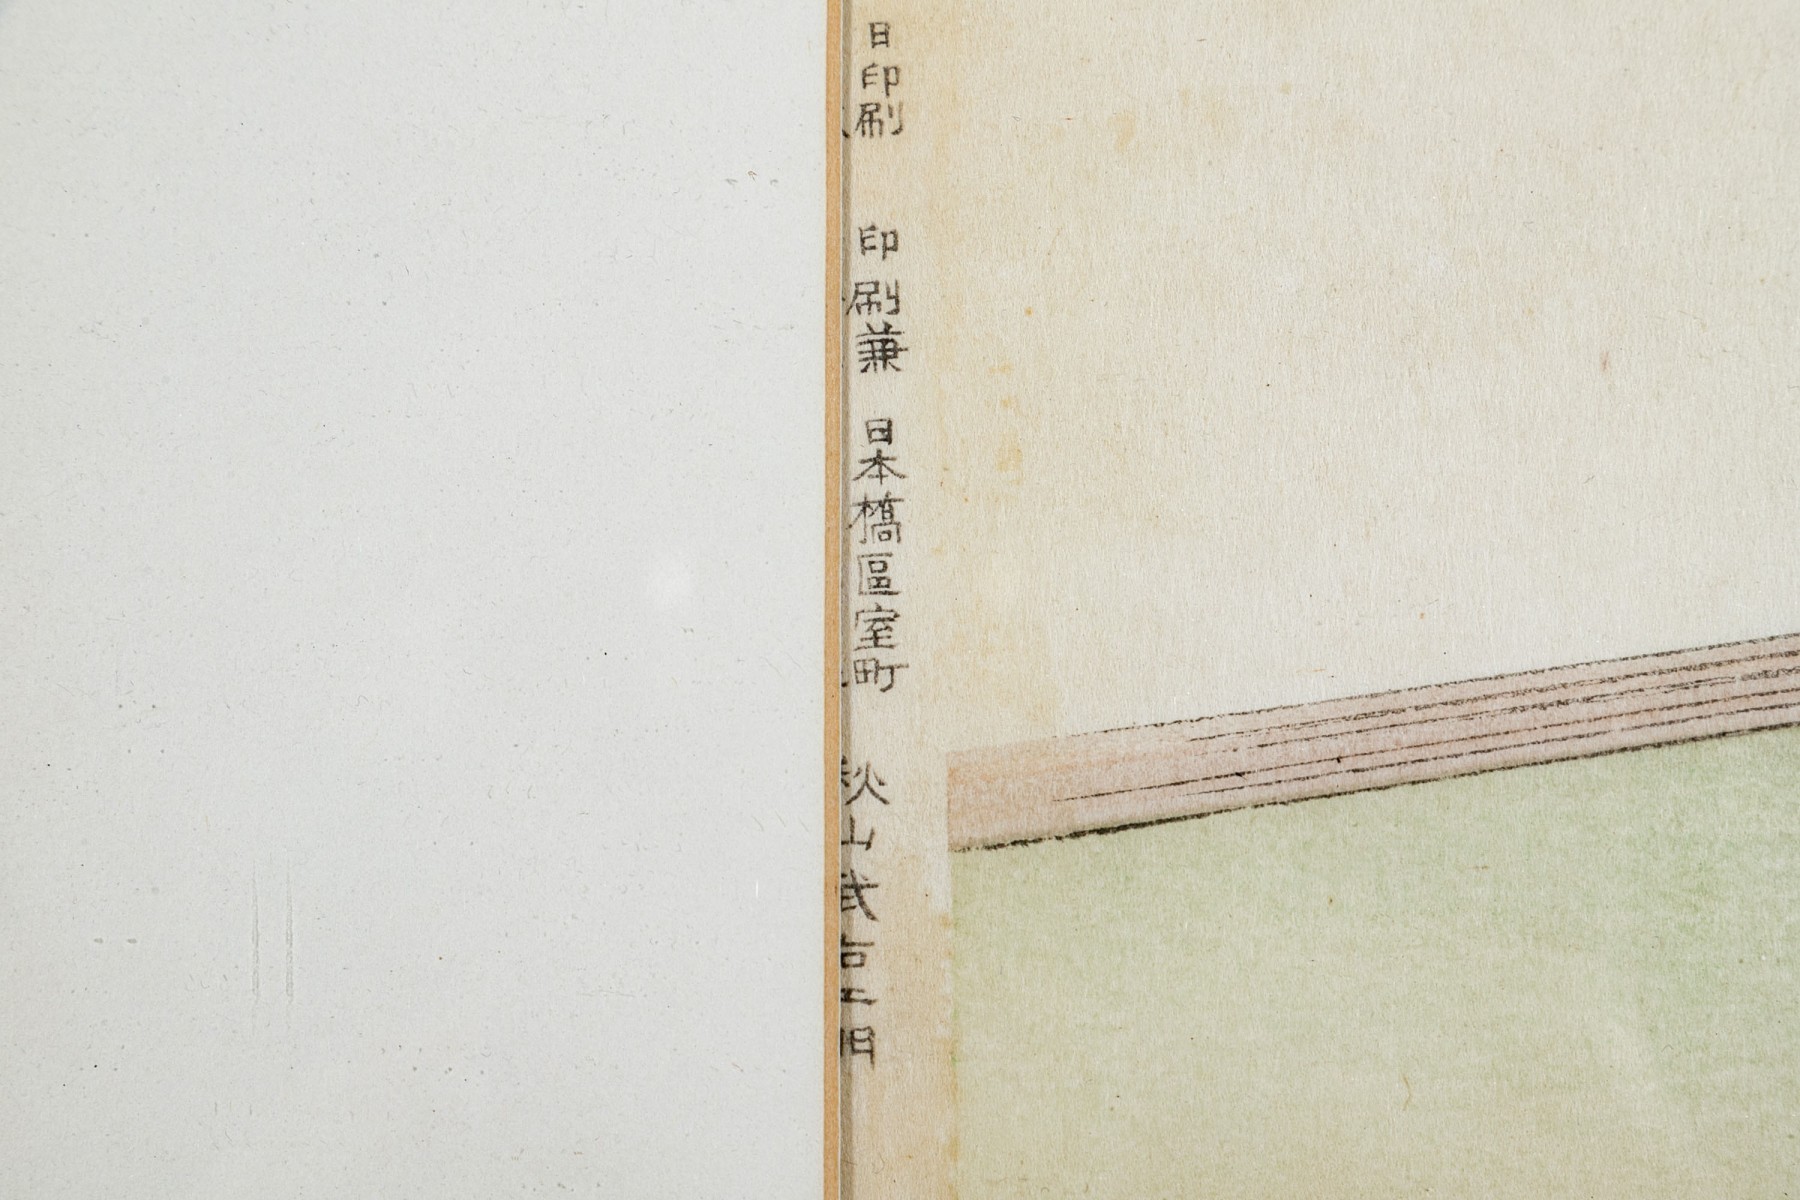 日印刷 印刷兼 日本橋區室町 秋山武